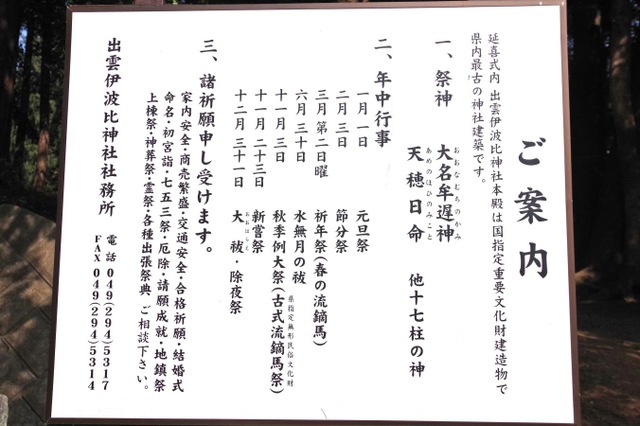 ご案内
延喜式内 出雲伊波比神社本殿は国指定重要文化財建造物で
県内最古の神社建築です。
一、祭神 大名牟遅神
おおなむちのかみ
天穂日命 他十七柱の神
あめのほひのみこと
二、年中行事
一月一日 元旦祭
二月三日 節分祭
三月第二日曜 祈年祭(春の流鏑馬)
六月三十日 水無月の祓
十一月三日 秋季例大祭(古式流鏑馬祭)
県指定無形民俗文化財
十一月二十三日 新嘗祭
十二月三十一日 大祓・除夜祭
おおはらい
三、諸祈願申し受けます。
家内安全・商売繁盛・交通安全・合格祈願・結婚式
命名・初宮詣・七五三祭・厄除・請願成就・地鎮祭
上棟祭・神葬祭・霊祭・各種出張祭典、ご相談下さい。
出雲伊波比神社社務所 電話 049(294)5317
FAX 049(294)5314